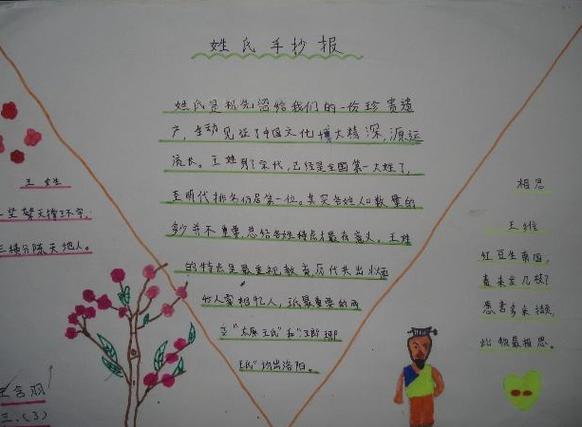 姓氏手抄报
姓氏是祖先留给我们的一份珍贵遗
产,生动见证了中国文化博大精深,源远
流长。王姓到了宋代,已经是全国第一大姓了,
至明代排名仍居第一位。其实各姓人口数量的
多少并不重要,总结各姓特点才最有意义。王姓
的特点是最重视教育,历代共出
名人宰相亿人,派最重要的两
支"太原王氏"和"王郎琊
王氏"均出洛阳。
王姓
王字
三横分陈天地人。
王含羽
三.(3)
相思
王维
红豆生南国,
春来发几枝?
愿君多采撷,
此物最相思。